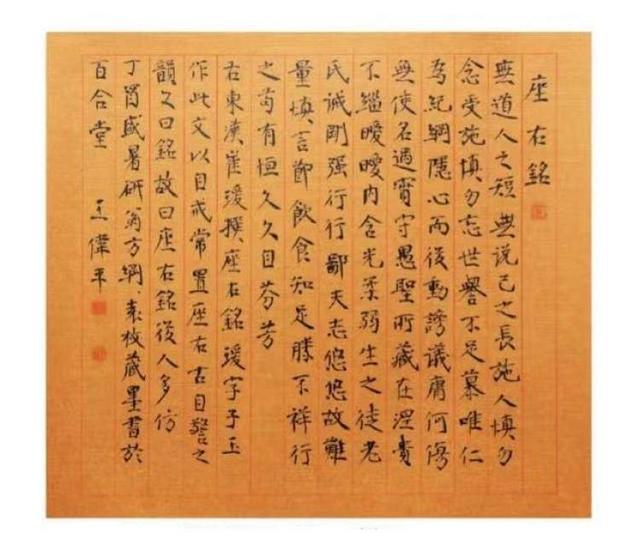 座右銘
無道人之短無説己之長施人慎勿
念受施慎勿忘世譽不足慕唯仁
為紀綱隱心而後動謗議庸何傷
無使名過實守愚聖所藏在涅貴
不緇曖曖内含光柔弱生之徒老
氏誡剛强行行鄙夫志悠悠故難
量慎言節飲食知足勝不祥行
之苟有恒久久自芬芳
右東漢崔瑗撰座右銘瑗字子玉
作此文以自戒常置座右古自警之
韻文曰銘故曰座右銘後人多仿
丁酉盛暑研翁方綱袁枚藏墨書於
百合堂 王偉平